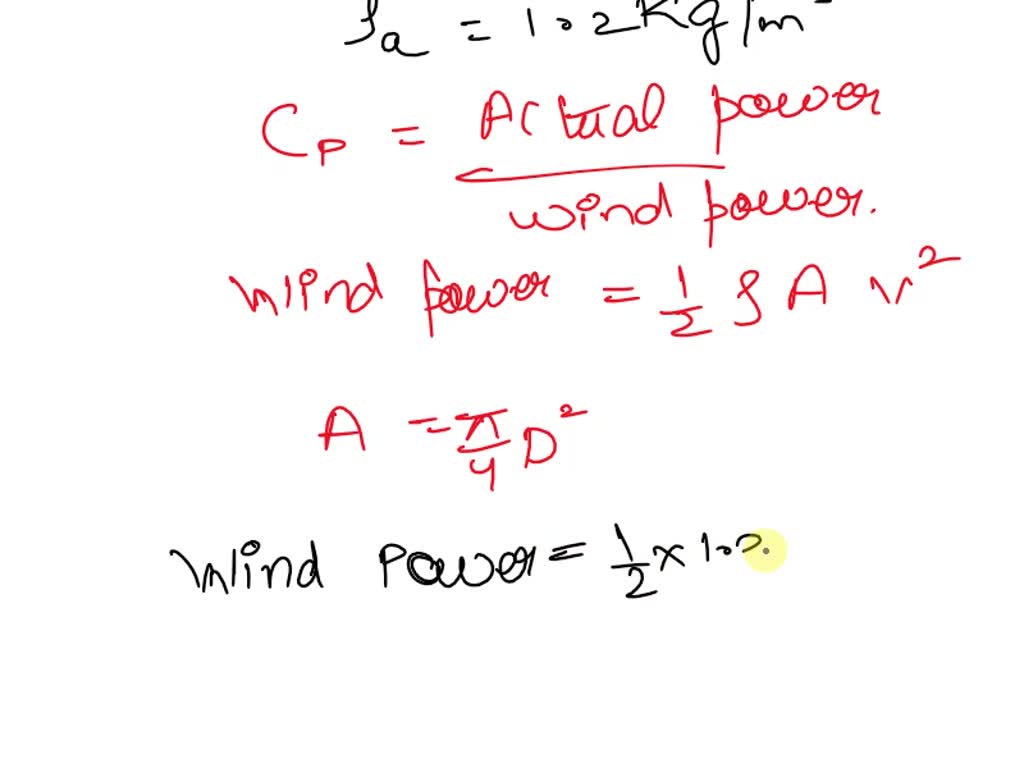 ρa = 1.2 Kg/m
Cp = Actual power
wind power.
Wind power = 1/2 ρ A v²
A = π/4 D²
Wind Power = 1/2 x 1.2